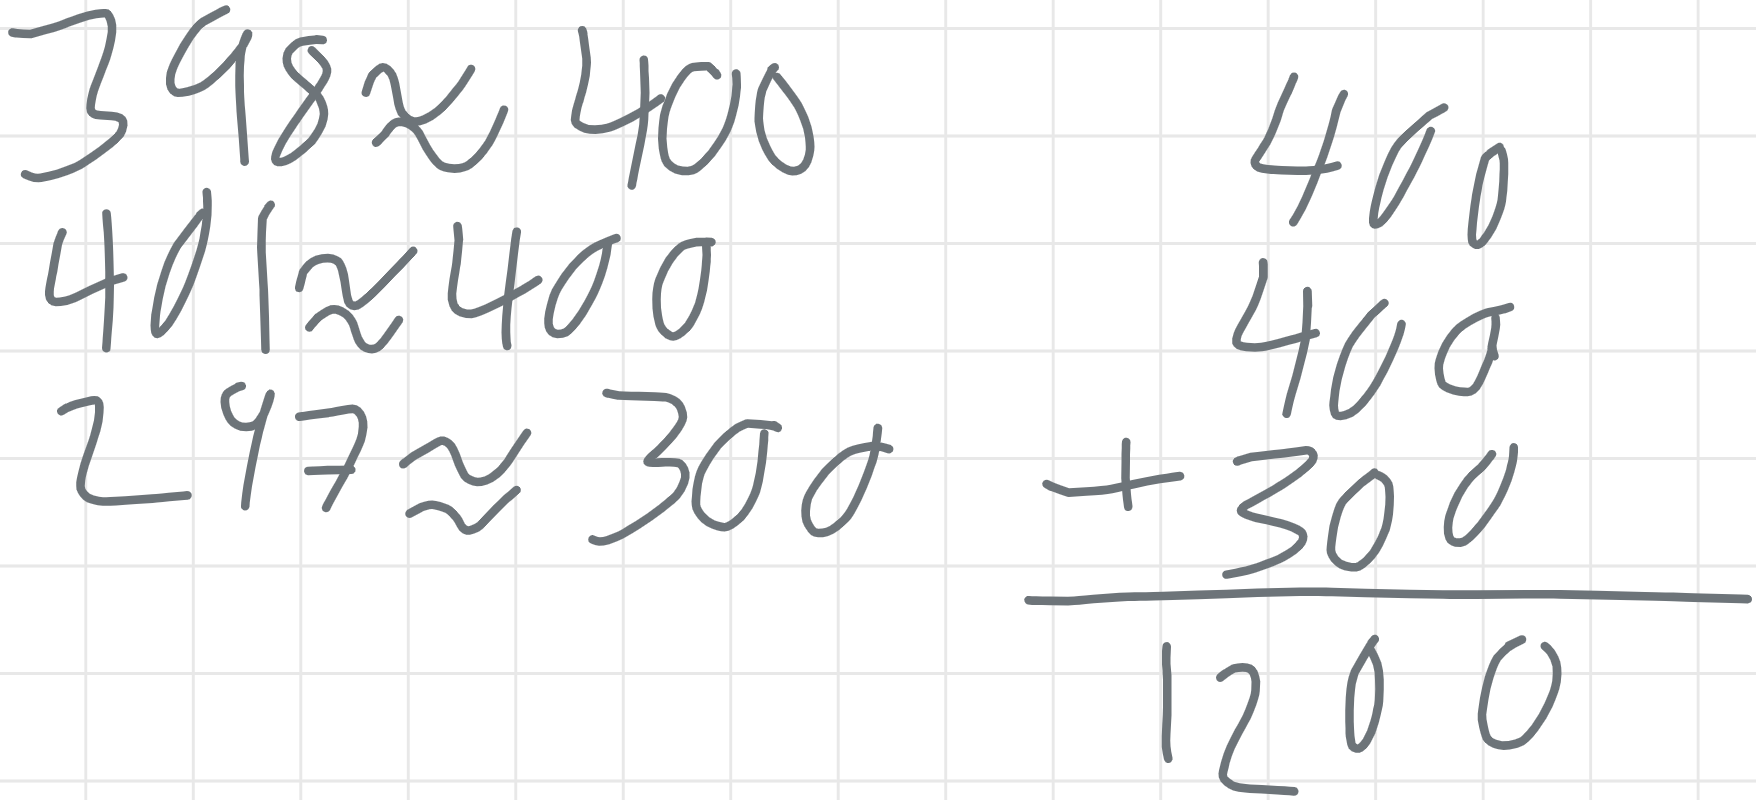 398 ≈ 400
401 ≈ 400
297 ≈ 300
400
400
+ 300
1200